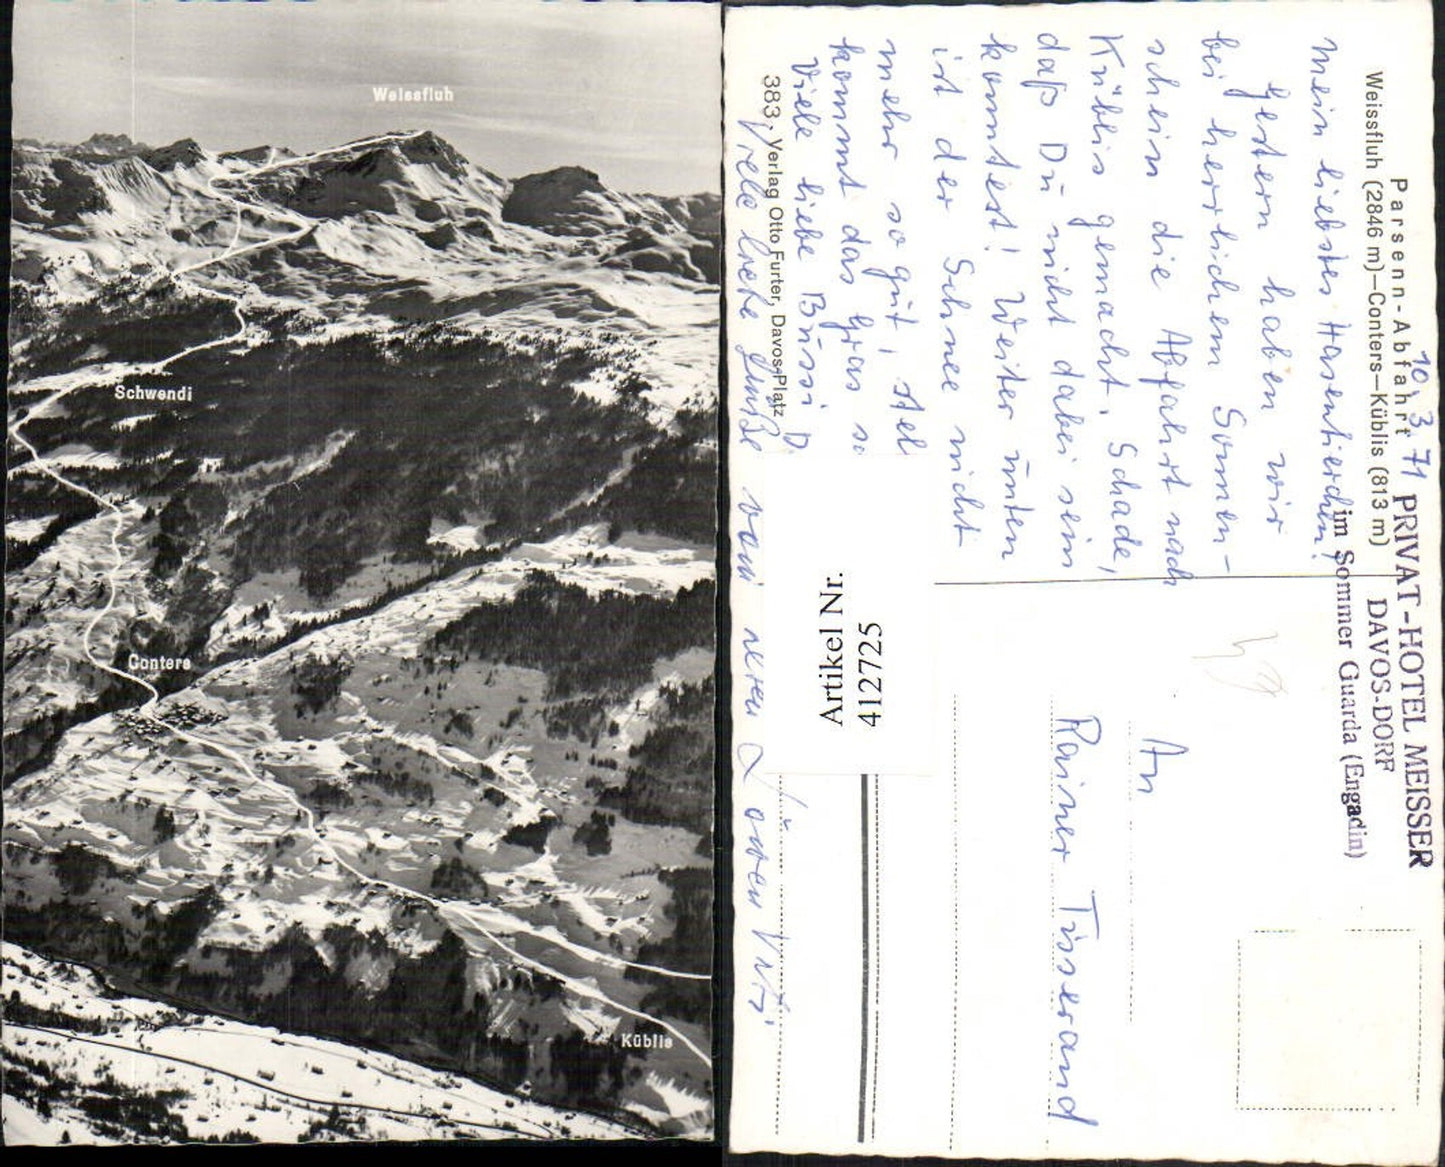 Weissfluh
Schwendi
Conters
Küblis
Parsenn-Abfahrt
Weissfluh (2846 m)—Conters—Küblis (813 m)
10. 3. 71
PRIVAT-HOTEL MEISSER
DAVOS-DORF
im Sommer Guarda (Engadin)
Mein liebstes Hasentierchen!
Gestern haben wir
bei herrlichem Sonnen-
schein die Abfahrt nach
Küblis gemacht. Schade,
daß Du nicht dabei sein
konntest! Weiter unten
ist der Schnee nicht
mehr so gut,
kommt das Gras
Viele liebe Bussi
Viele liebe Grüße von
383, Verlag Otto Furter, Davos-Platz
An
Rainer Tisserand
Artikel Nr.
412725